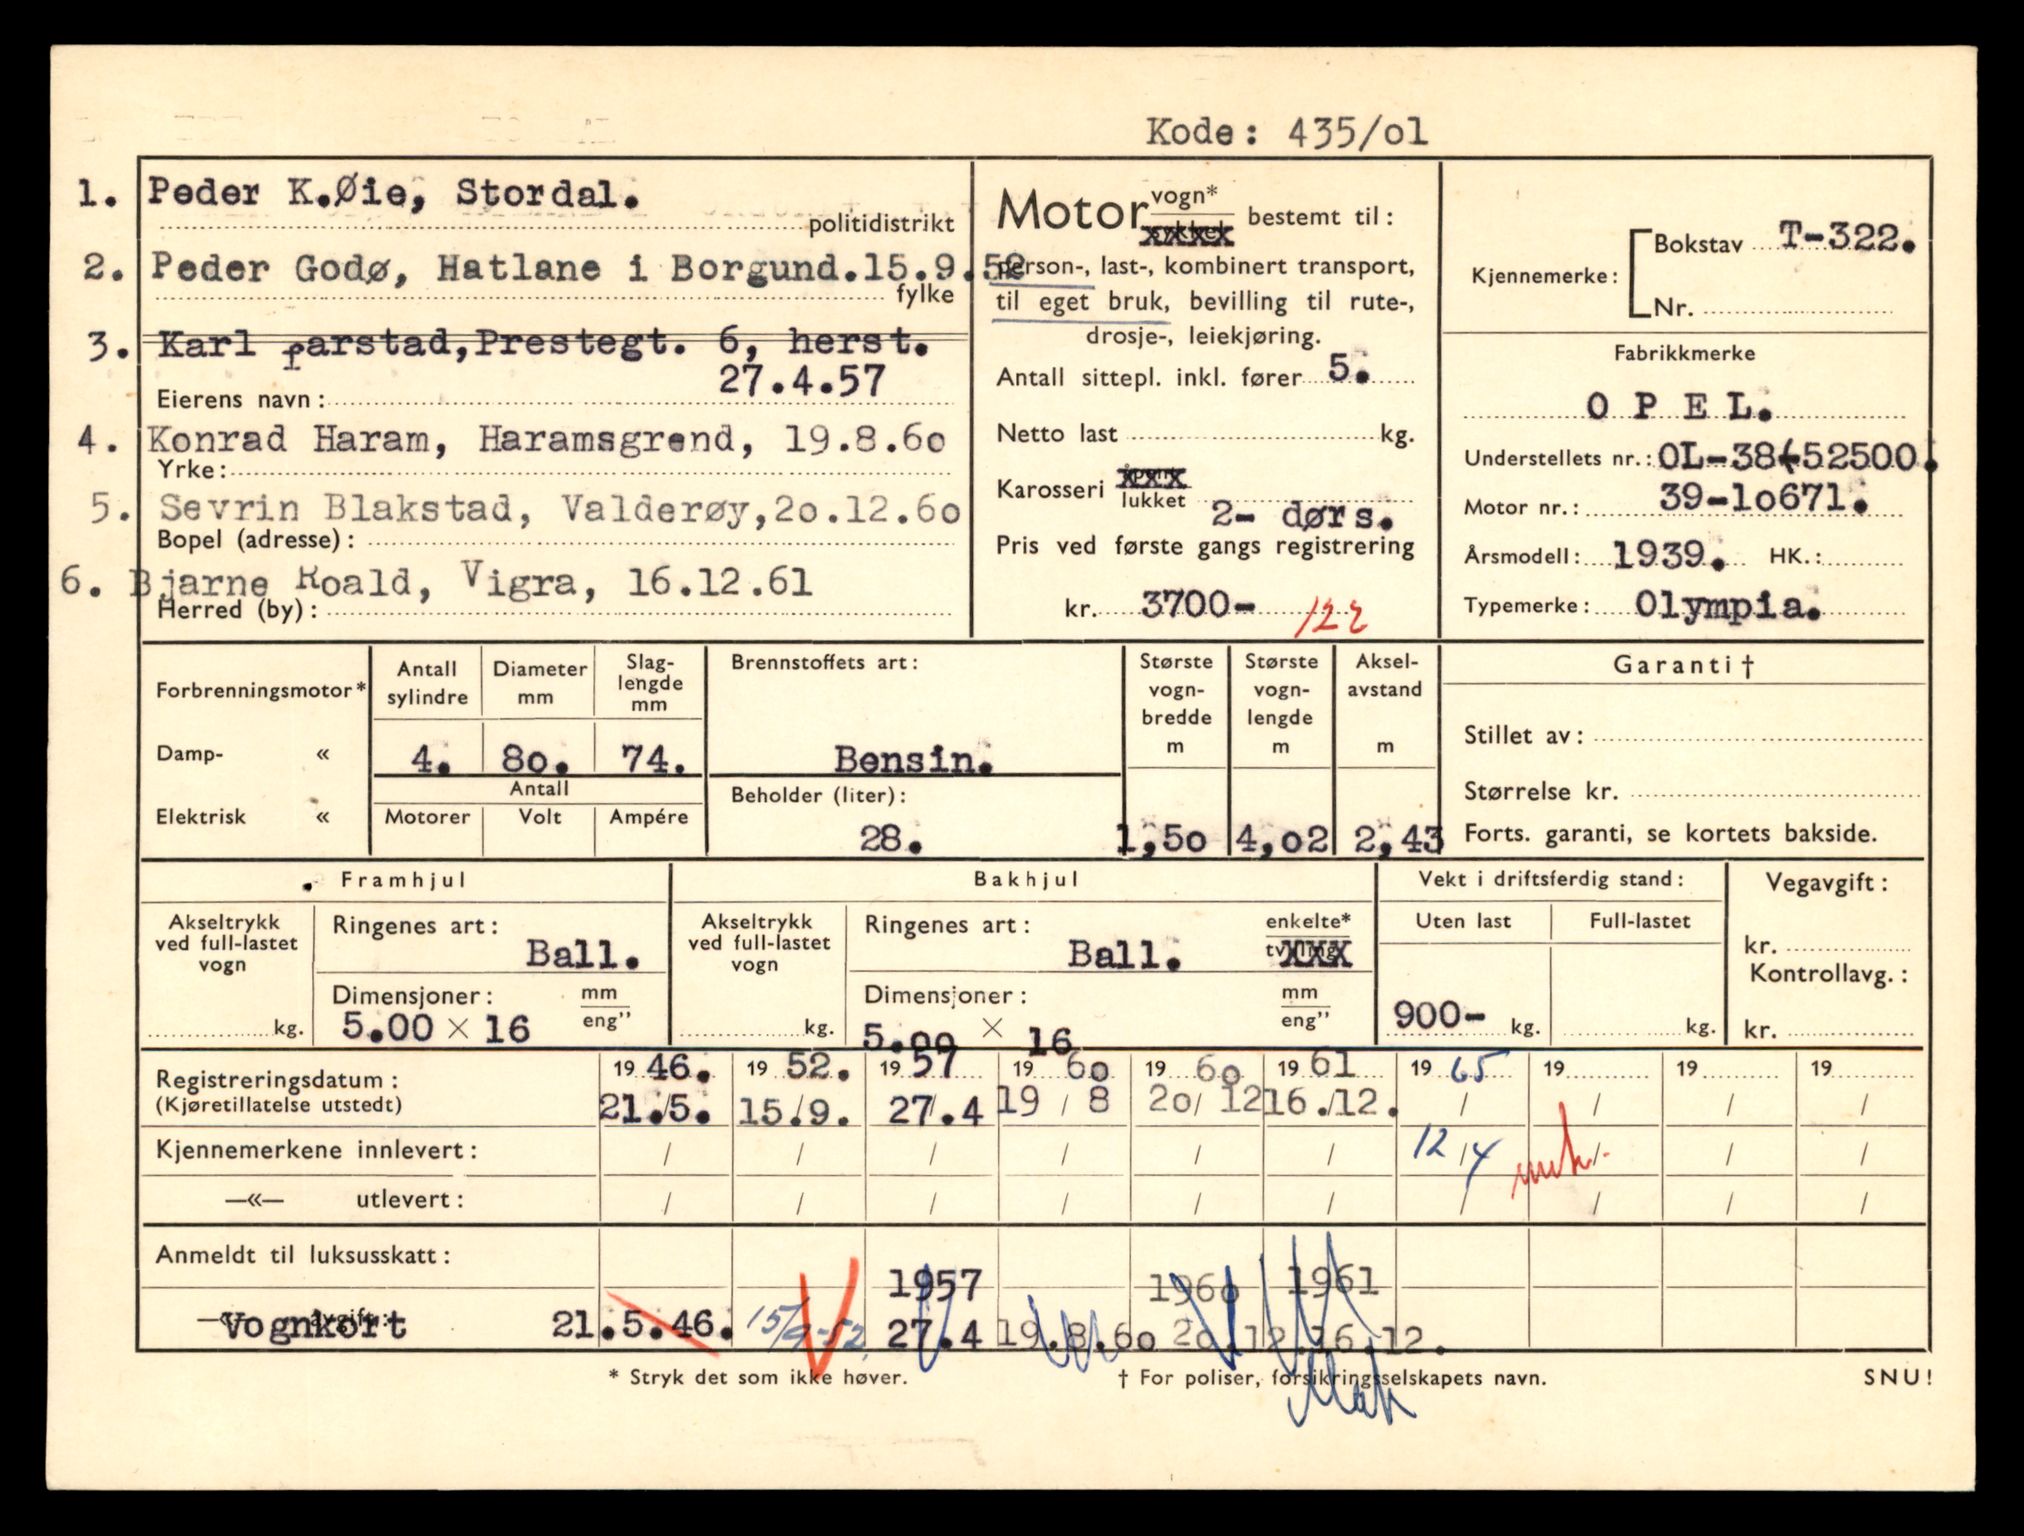 Kode: 435/o1
1. Peder K.Øie, Stordal.
politidistrikt
2. Peder Godø, Hatlane i Borgund.15.9.52
fylke
3. Karl Farstad,Prestegt. 6, herst.
27.4.57
Eierens navn:
4. Konrad Haram, Haramsgrend, 19.8.6o
Yrke:
5. Sevrin Blakstad, Valderøy,2o.12.6o
Bopel (adresse):
6. Bjarne Roald, Vigra, 16.12.61
Herred (by):
Motor vogn* bestemt til:
sykkel xxxx
person-, last-, kombinert transport,
til eget bruk, bevilling til rute-,
drosje-, leiekjøring.
Antall sittepl. inkl. fører 5.
Netto last kg.
Karosseri xxx
lukket 2- dørs.
Pris ved første gangs registrering
kr. 3700-
Kjennemerke: Bokstav T-322.
Nr.
Fabrikkmerke
O P E L.
Understellets nr.: OL-38-52500.
Motor nr.: 39-1o671.
Årsmodell: 1939. HK.:
Typemerke: Olympia.
Forbrenningsmotor*
Damp- «
Elektrisk «
Antall sylindre Diameter mm Slag-lengde mm
4. 8o. 74.
Antall
Motorer Volt Ampére
Brennstoffets art:
Bensin.
Beholder (liter):
28.
Største vogn-bredde m Største vogn-lengde m Aksel-avstand m
1,5o 4,o2 2,43
Garanti †
Stillet av:
Størrelse kr.
Forts. garanti, se kortets bakside.
Framhjul
Akseltrykk ved full-lastet vogn
kg.
Ringenes art:
Ball.
Dimensjoner: mm
5.00 × 16 eng"
Bakhjul
Akseltrykk ved full-lastet vogn
kg.
Ringenes art: enkelte*
Ball. tvilling xxx
Dimensjoner: mm
5.00 × 16 eng"
Vekt i driftsferdig stand:
Uten last Full-lastet
900- kg. kg.
Vegavgift:
kr.
Kontrollavg.:
kr.
Registreringsdatum: 19 46. 19 52. 19 57 19 6o 19 6o 19 61 19 65 19 19 19
(Kjøretillatelse utstedt) 21./5. 15/9. 27/.4 19 / 8 2o/ 12 16./12. / / / /
Kjennemerkene innlevert: / / / / / / 12/4 / / /
—«— utlevert: / / / / / / / / / /
Anmeldt til luksusskatt:
1957 196o 1961
—«— avgift:
Vognkort 21.5.46. 15/9-52. 27.4 19.8.6o 2o.12. 16.12.
* Stryk det som ikke høver.
† For poliser, forsikringsselskapets navn.
SNU!